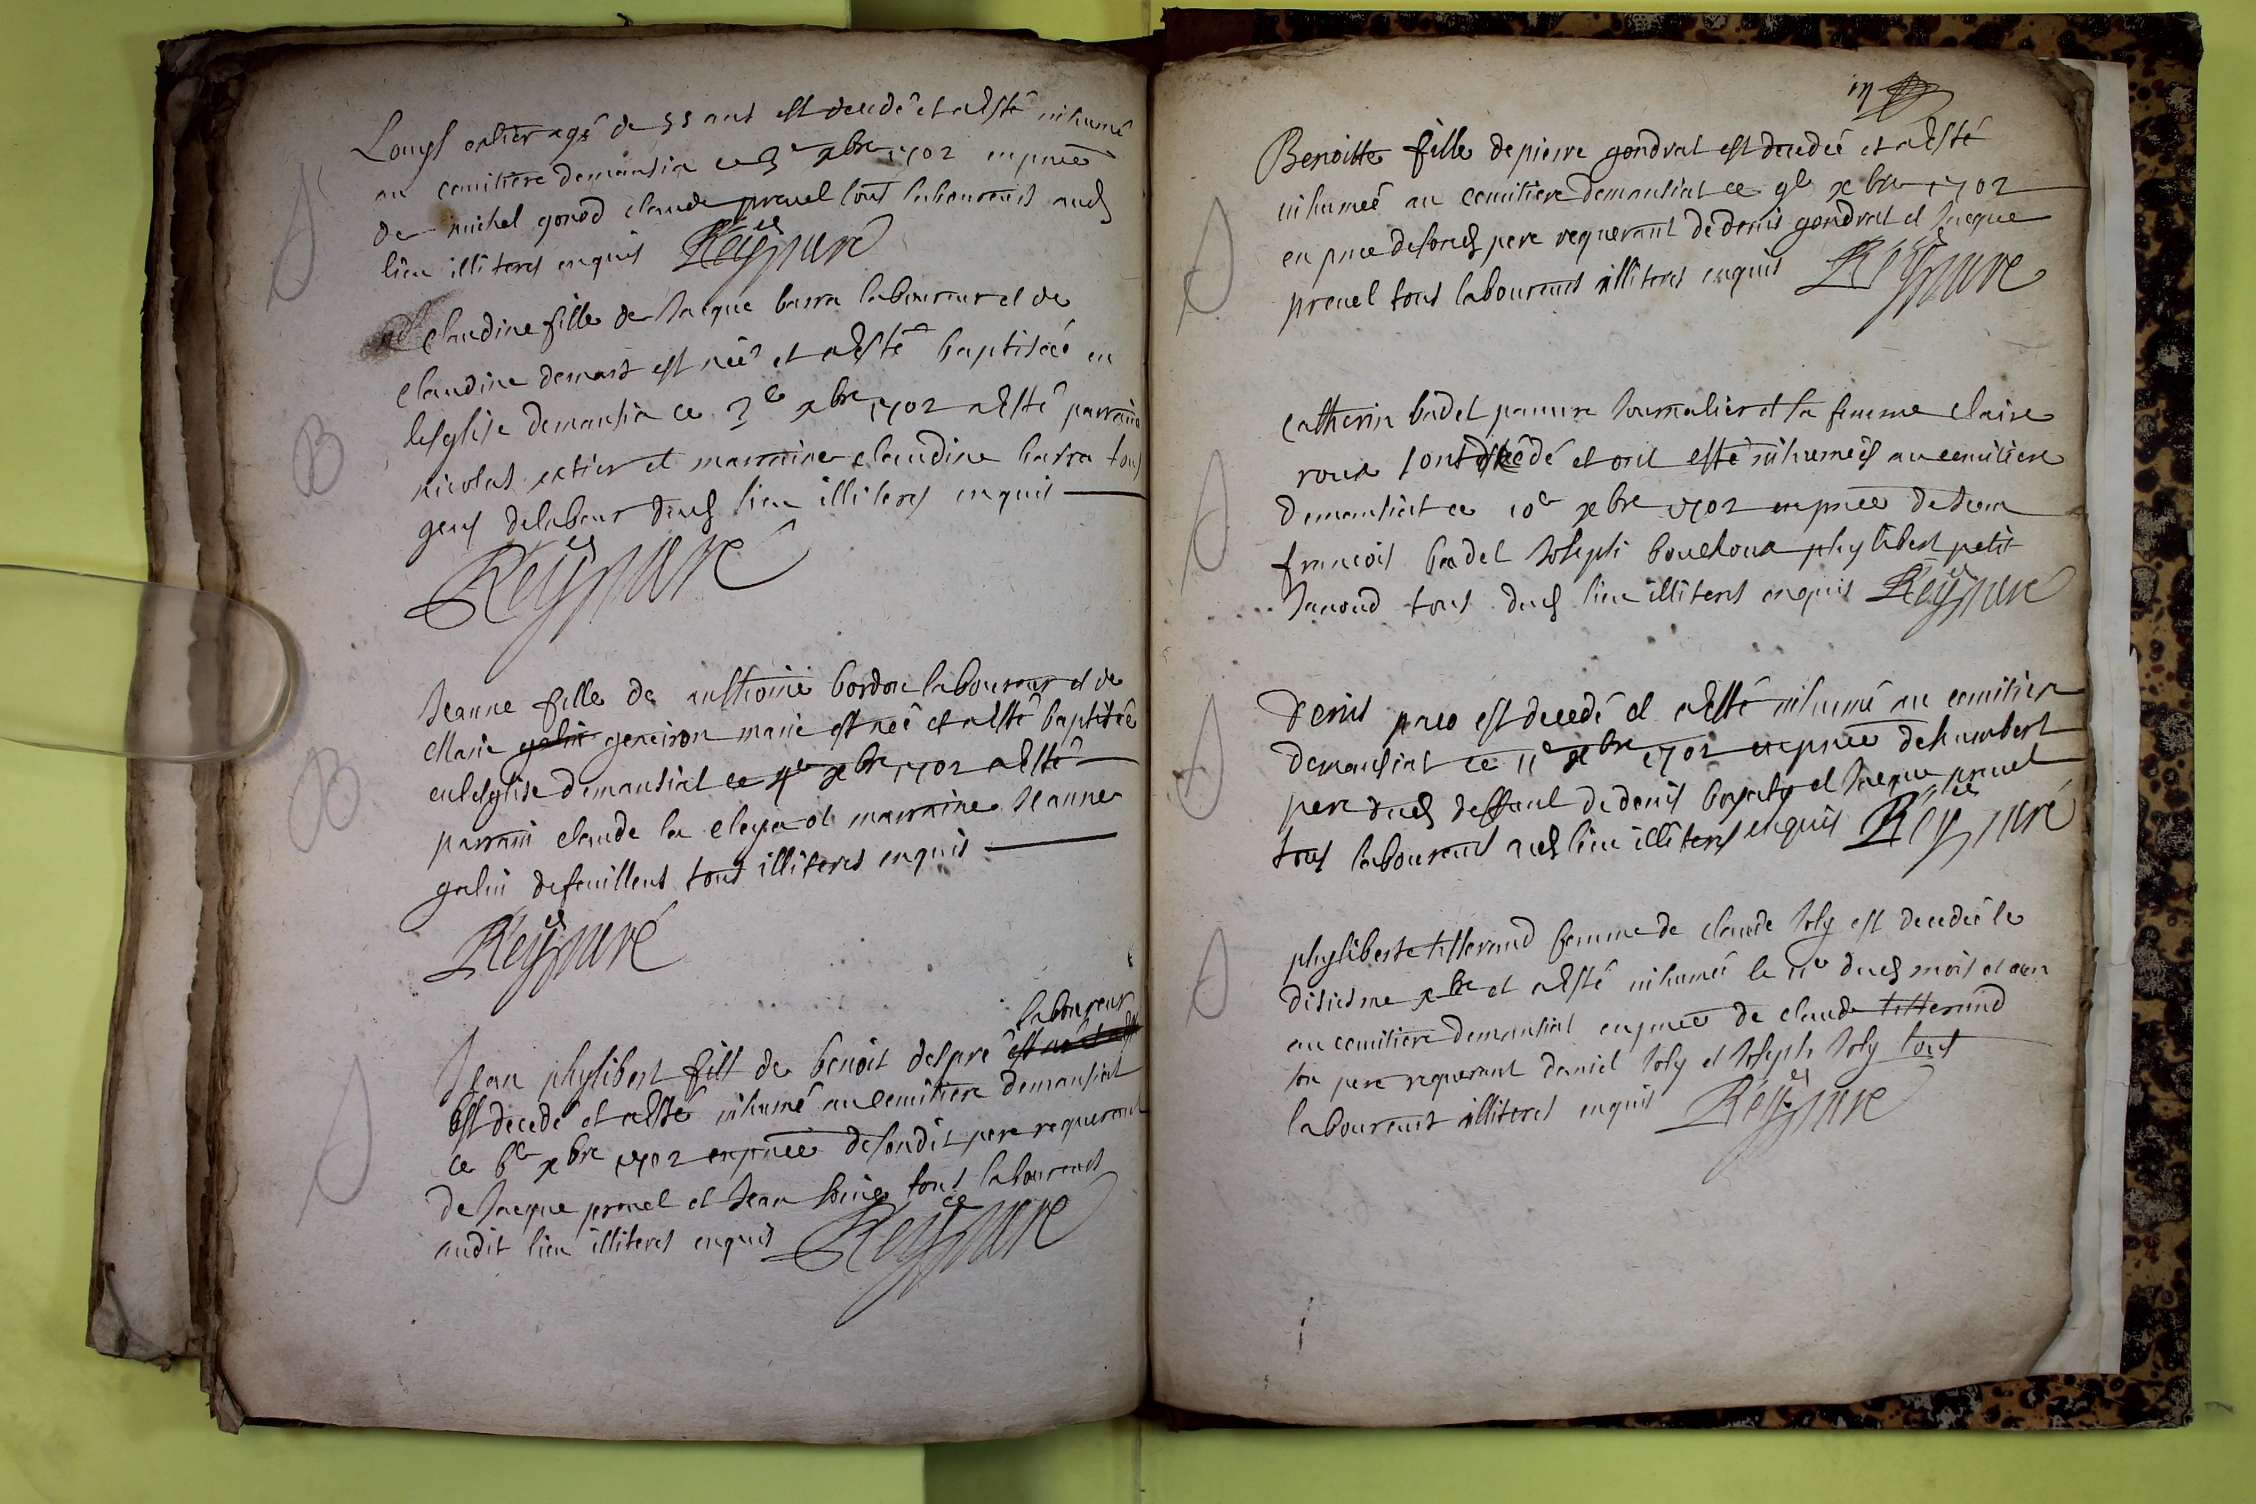 Louys extier agé de 55 ans est decedé et a esté inhumé
au cemitiere demansia ce 3e xbre 1702 en pnce
de michel gonod claude preuel tous laboureurs aud
lieu illiteres enquis Rey curé
D
Claudine fille de Jacque barra laboureur et de
Claudine demars est née et a esté baptisée en
leglise demansia ce 3e xbre 1702 a esté parrain
nicolas extier et marraine claudine barra tous
gens de labeur dud lieu illiteres enquis
B
Rey curé
Jeanne fille de anthoine bordon laboureur et de
Marie geneiron marie est née et a esté baptisée
en leglise demansiat ce 4e xbre 1702 a esté
parrain claude la et marraine Jeanne
galin de feuillens tous illiteres enquis
B
Rey curé
laboureur
Jean phylibert fils de benoit despré
est decedé et a esté inhumé au cemitiere demansiat
ce 6e xbre 1702 en pnce de sondit pere requerant
de Jacque preuel et Jean tous laboureurs
audit lieu illiteres enquis Rey curé
D
Benoitte fille de pierre gondrat est decedée et a esté
inhumée au cemitiere demansiat ce 9e xbre 1702
en pnce de soud pere requerant de denis gondrat et Jacque
preuel tous laboureurs illiteres enquis Rey curé
D
Catherin badel pauure Journalier et sa femme claire
roux sont decedé et ont esté inhumés au cemitiere
demansiat ce 10e xbre 1702 en pnce de Jean
francois badel Joseph bouchoux phylibert petit
Janoud tous dud lieu illiteres enquis Rey curé
D
Denis est decedé et a esté inhumé au cemitiere
demansiat ce 11e xbre 1702 en pnce de humbert
pere dud deffunt de denis et Jacque preuel
tous laboureurs aud lieu illiteres enquis Rey curé
D
phyliberte tisserand femme de claude Joly est decedée le
disiesme xbre et a esté inhumée le 11e dud mois et an
au cemitiere demansiat en pnce de claude tisserand
son pere requerant daniel Joly et Joseph Joly tous
laboureurs illiteres enquis Rey curé
D